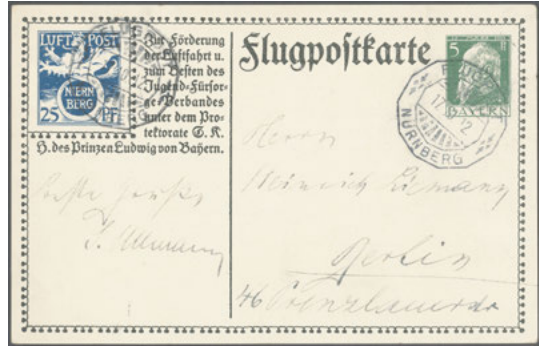 LUFT POST
NÜRN
BERG
25 PF
Zur Förderung
der Luftfahrt u.
zum Besten des
Jugend-Fürsor-
ge-Verbandes
unter dem Pro-
tektorate S. K.
H. des Prinzen Ludwig von Bayern.
Flugpostkarte
5
BAYERN
FLUG
12
NÜRNBERG
Herrn
Heinrich
Berlin
46
Beste Grüße